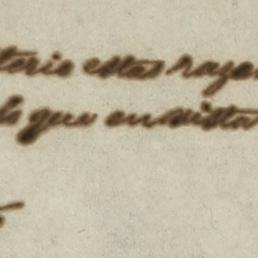 terio estas razo
lo que en vista